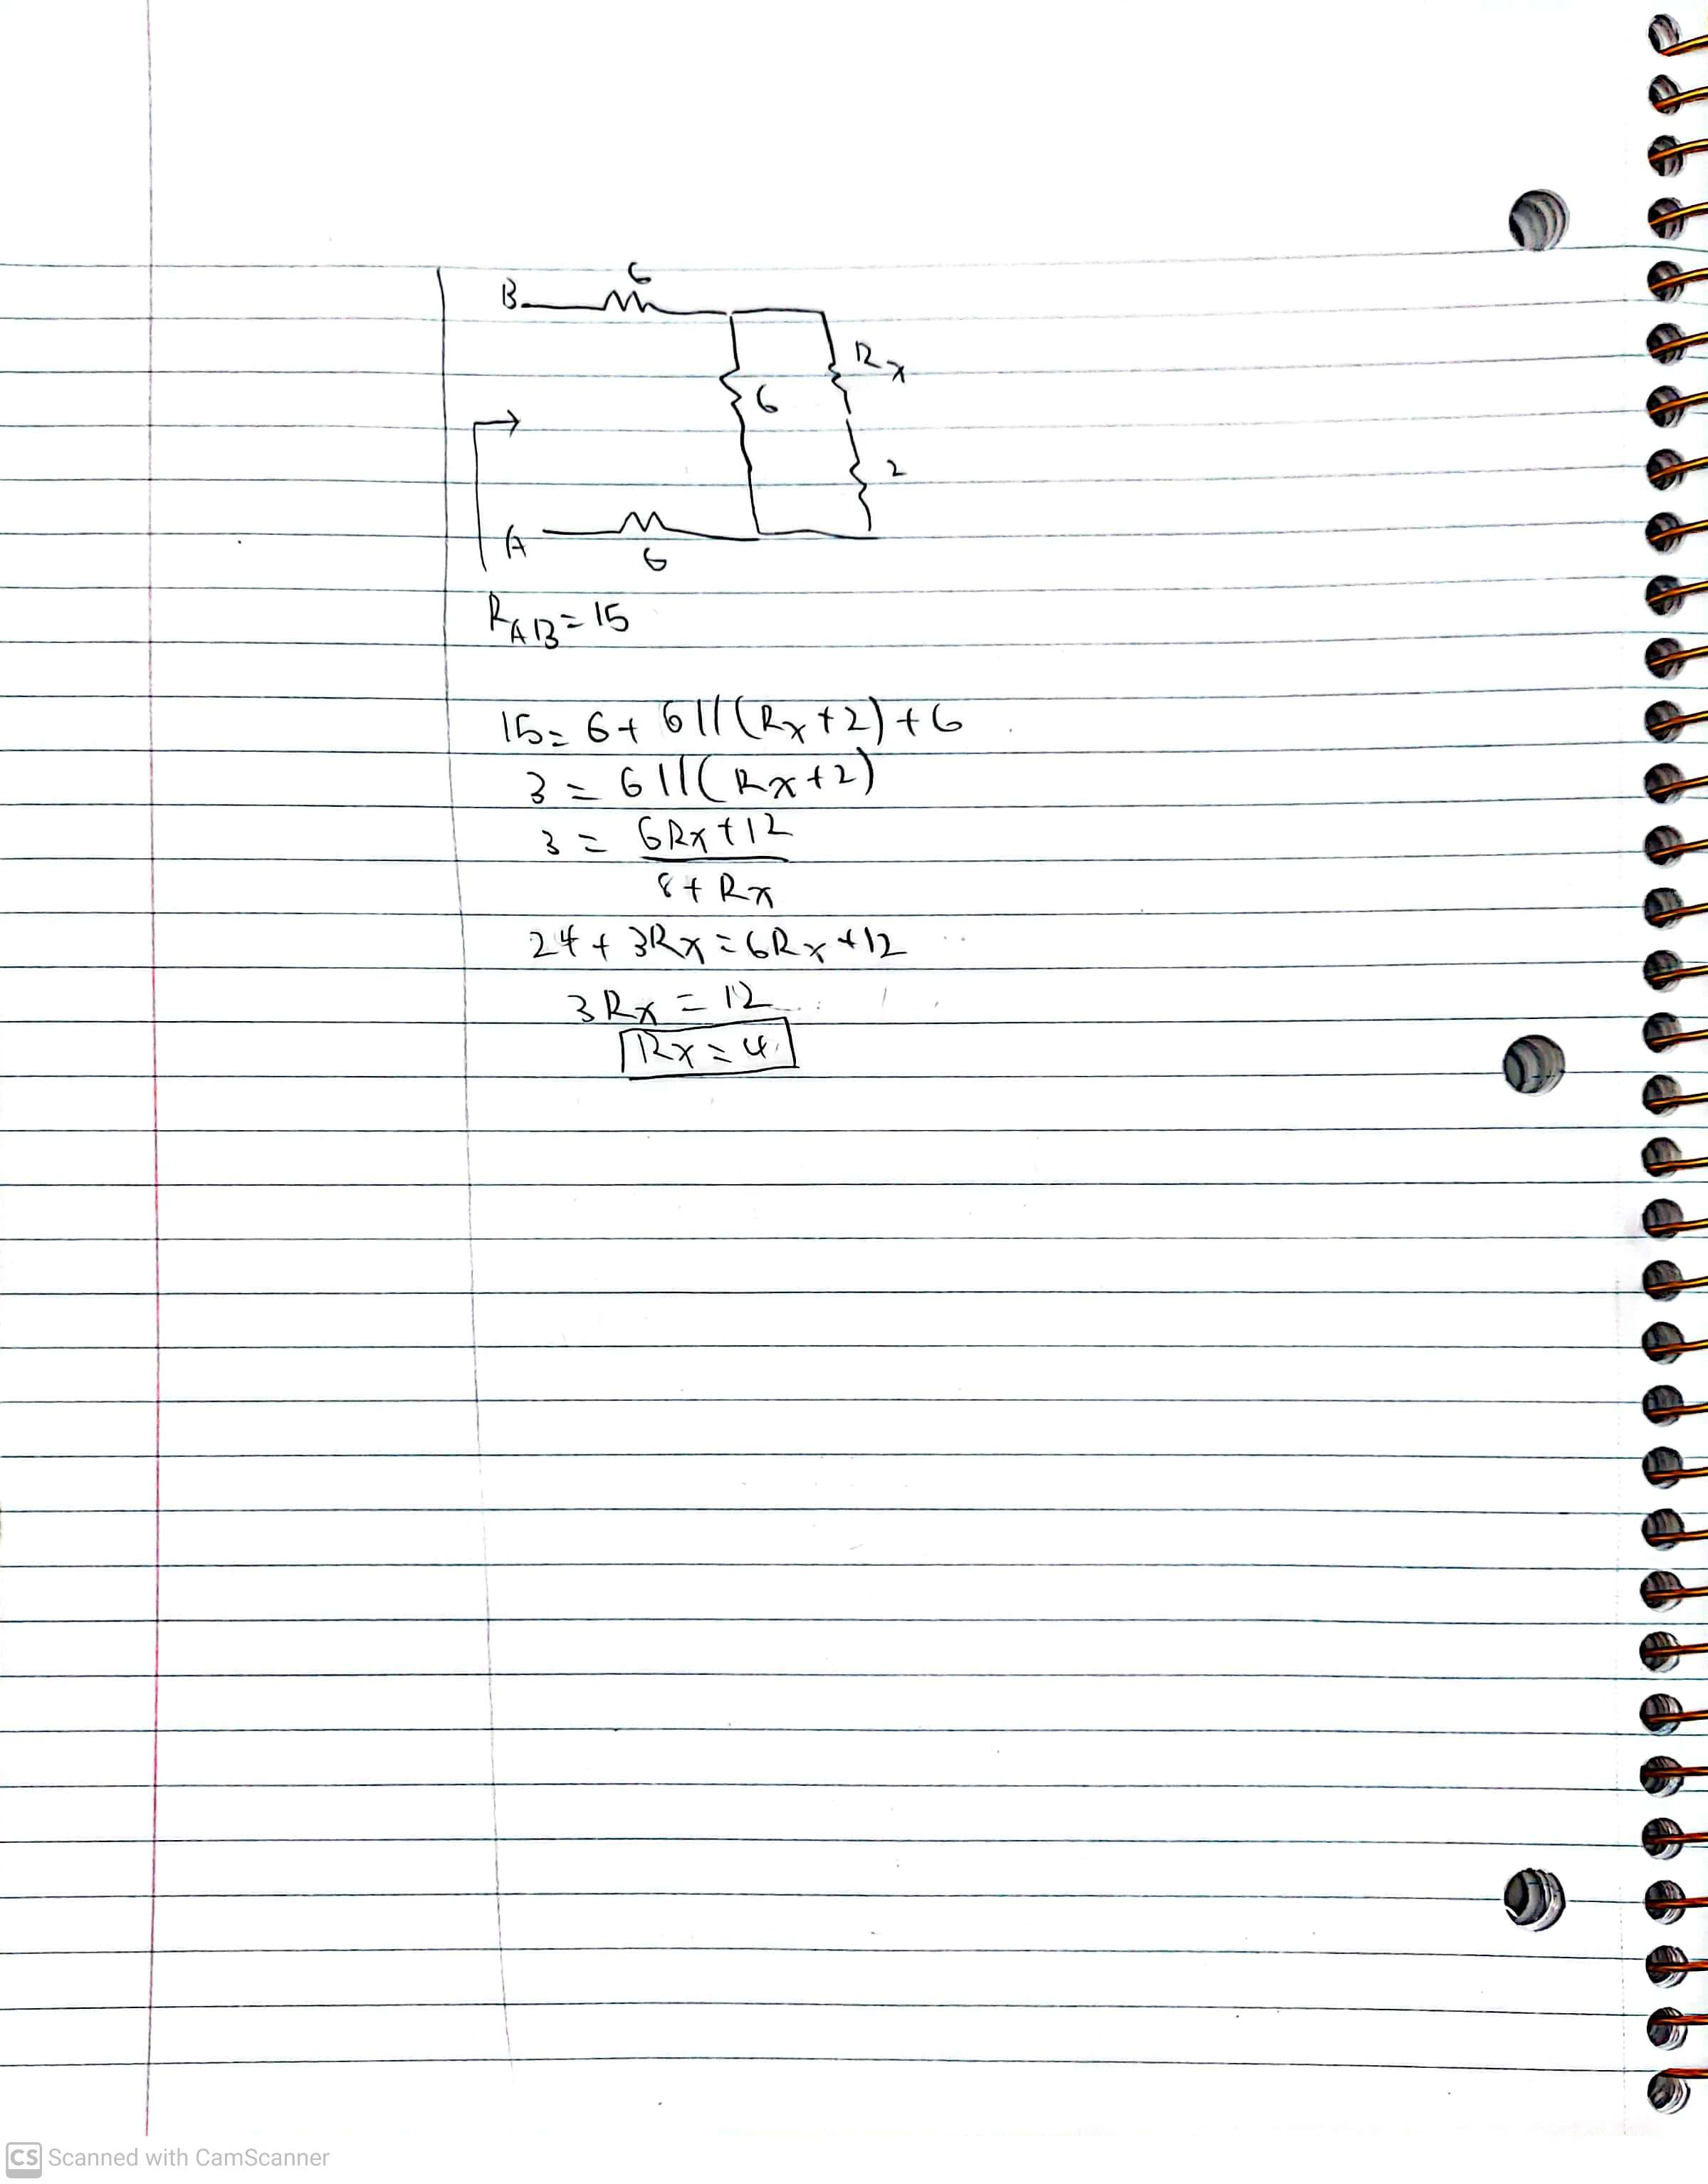 6
B
Rx
6
2
A
6
RAB = 15
15 = 6 + 6 || (Rx + 2) + 6
3 = 6 || (Rx + 2)
3 = 6Rx + 12
8 + Rx
24 + 3Rx = 6Rx + 12
3Rx = 12
Rx = 4
CS Scanned with CamScanner